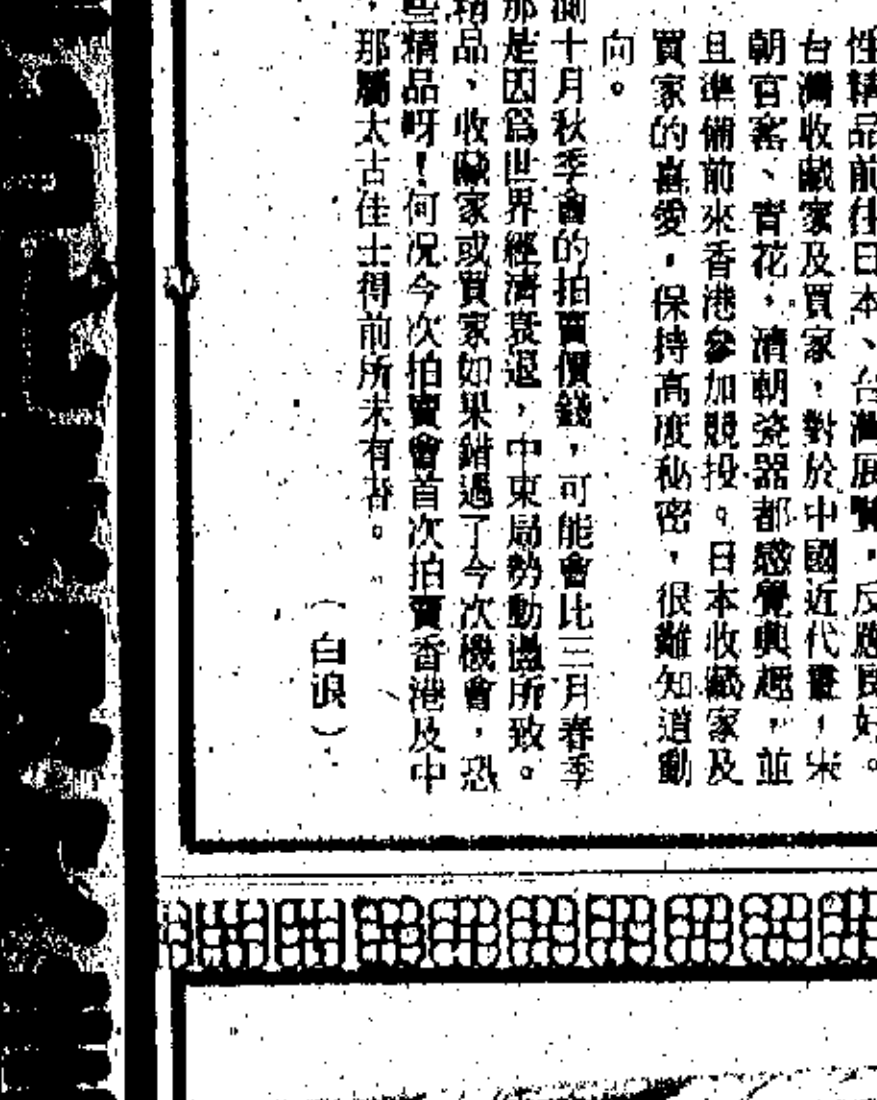 性精品前往日本、台灣展覽，反應良好。
台灣收藏家及買家，對於中國近代畫，宋
朝官窰、青花，清朝瓷器都感覺興趣，並
且準備前來香港參加競投。日本收藏家及
買家的喜愛，保持高度秘密，很難知道動
向。
測十月秋季會的拍賣價錢，可能會比三月春季
那是因為世界經濟衰退，中東局勢動盪所致。
精品，收藏家或買家如果錯過了今次機會，恐
些精品呀！何況今次拍賣會首次拍賣香港及中
，那屬太古佳士得前所未有者。
（白浪）